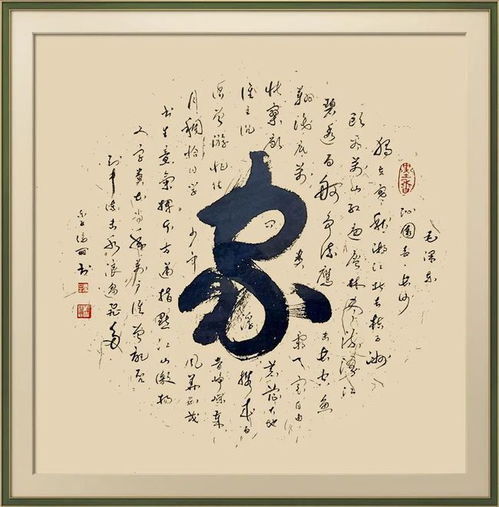 毛泽东
沁園春 长沙
独立寒秋湘江北去橘子洲
头看万山红遍层林尽染漫江
碧透百舸争流鹰击长空鱼
翔浅底万类霜天竞自由
怅寥廓问苍茫大地
谁主沉浮携来百
侣曾游忆往昔峥嵘岁
月稠恰同学少年风华正茂
书生意气挥斥方遒指點江山激扬
文字粪土当年万户侯曾记否
到中流击水浪遏飞舟
书